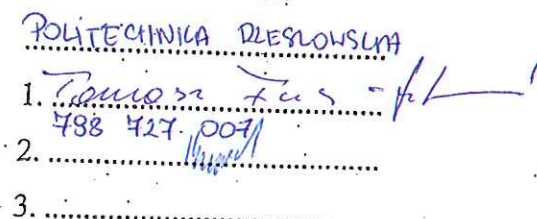 POLITECHNIKA RZESZOWSKA
1. Tomasz
798 727 007
2.
3.